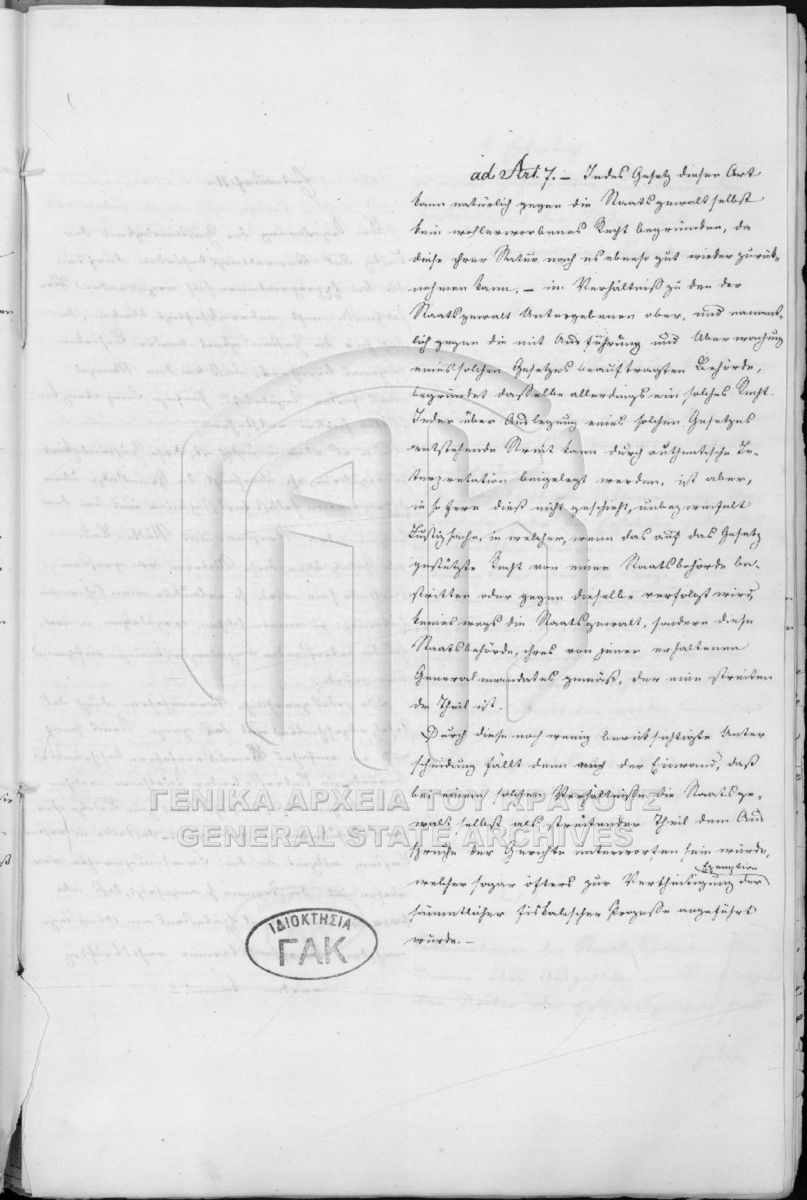 ad Art. 7. – Jedes Gesetz dieser Art
kann natürlich gegen die Staatsgewalt selbst
kein wohlerworbenes Recht begründen, da
diese ihrer Natur nach es ebenso gut wieder zurük-
nehmen kann, – im Verhältniß zu den der
Staatsgewalt Untergebenen aber, und nament-
lich gegen die mit Ausführung und Überwachung
eines solchen Gesetzes beauftragten Behörde,
begründet dasselbe allerdings ein solches Recht.
Jeder über Auslegung eines solchen Gesetzes
entstehende Streit kann durch authentische In-
terpretation beigelegt werden, ist aber,
in so ferne dieß nicht geschieht, unbezweifelt
Justizsache, in welcher, wenn das auf das Gesetz
gestützte Recht von einer Staatsbehörde be-
stritten oder gegen dieselbe verfolgt wird,
keineswegs die Staatsgewalt, sondern diese
Staatsbehörde, ihres von jener erhaltenen
Generalmandates gemäß, der eine streiten
de Theil ist.
Durch diese noch wenig berüksichtigte Unter
scheidung fällt denn auch der Einwand, daß
bei einem solchen Verhältnisse die Staatsge-
walt selbst als streitender Theil dem Aus
spruche der Gerichte unterworfen sein würde,
Exemption
welcher sogar öfters zur Vertheidigung der
sämmtlicher fiskalischer Prozesse angeführt
wurde. –
ΓΕΝΙΚΑ ΑΡΧΕΙΑ ΤΟΥ ΚΡΑΤΟΥΣ
GENERAL STATE ARCHIVES
ΙΔΙΟΚΤΗΣΙΑ
ΓΑΚ